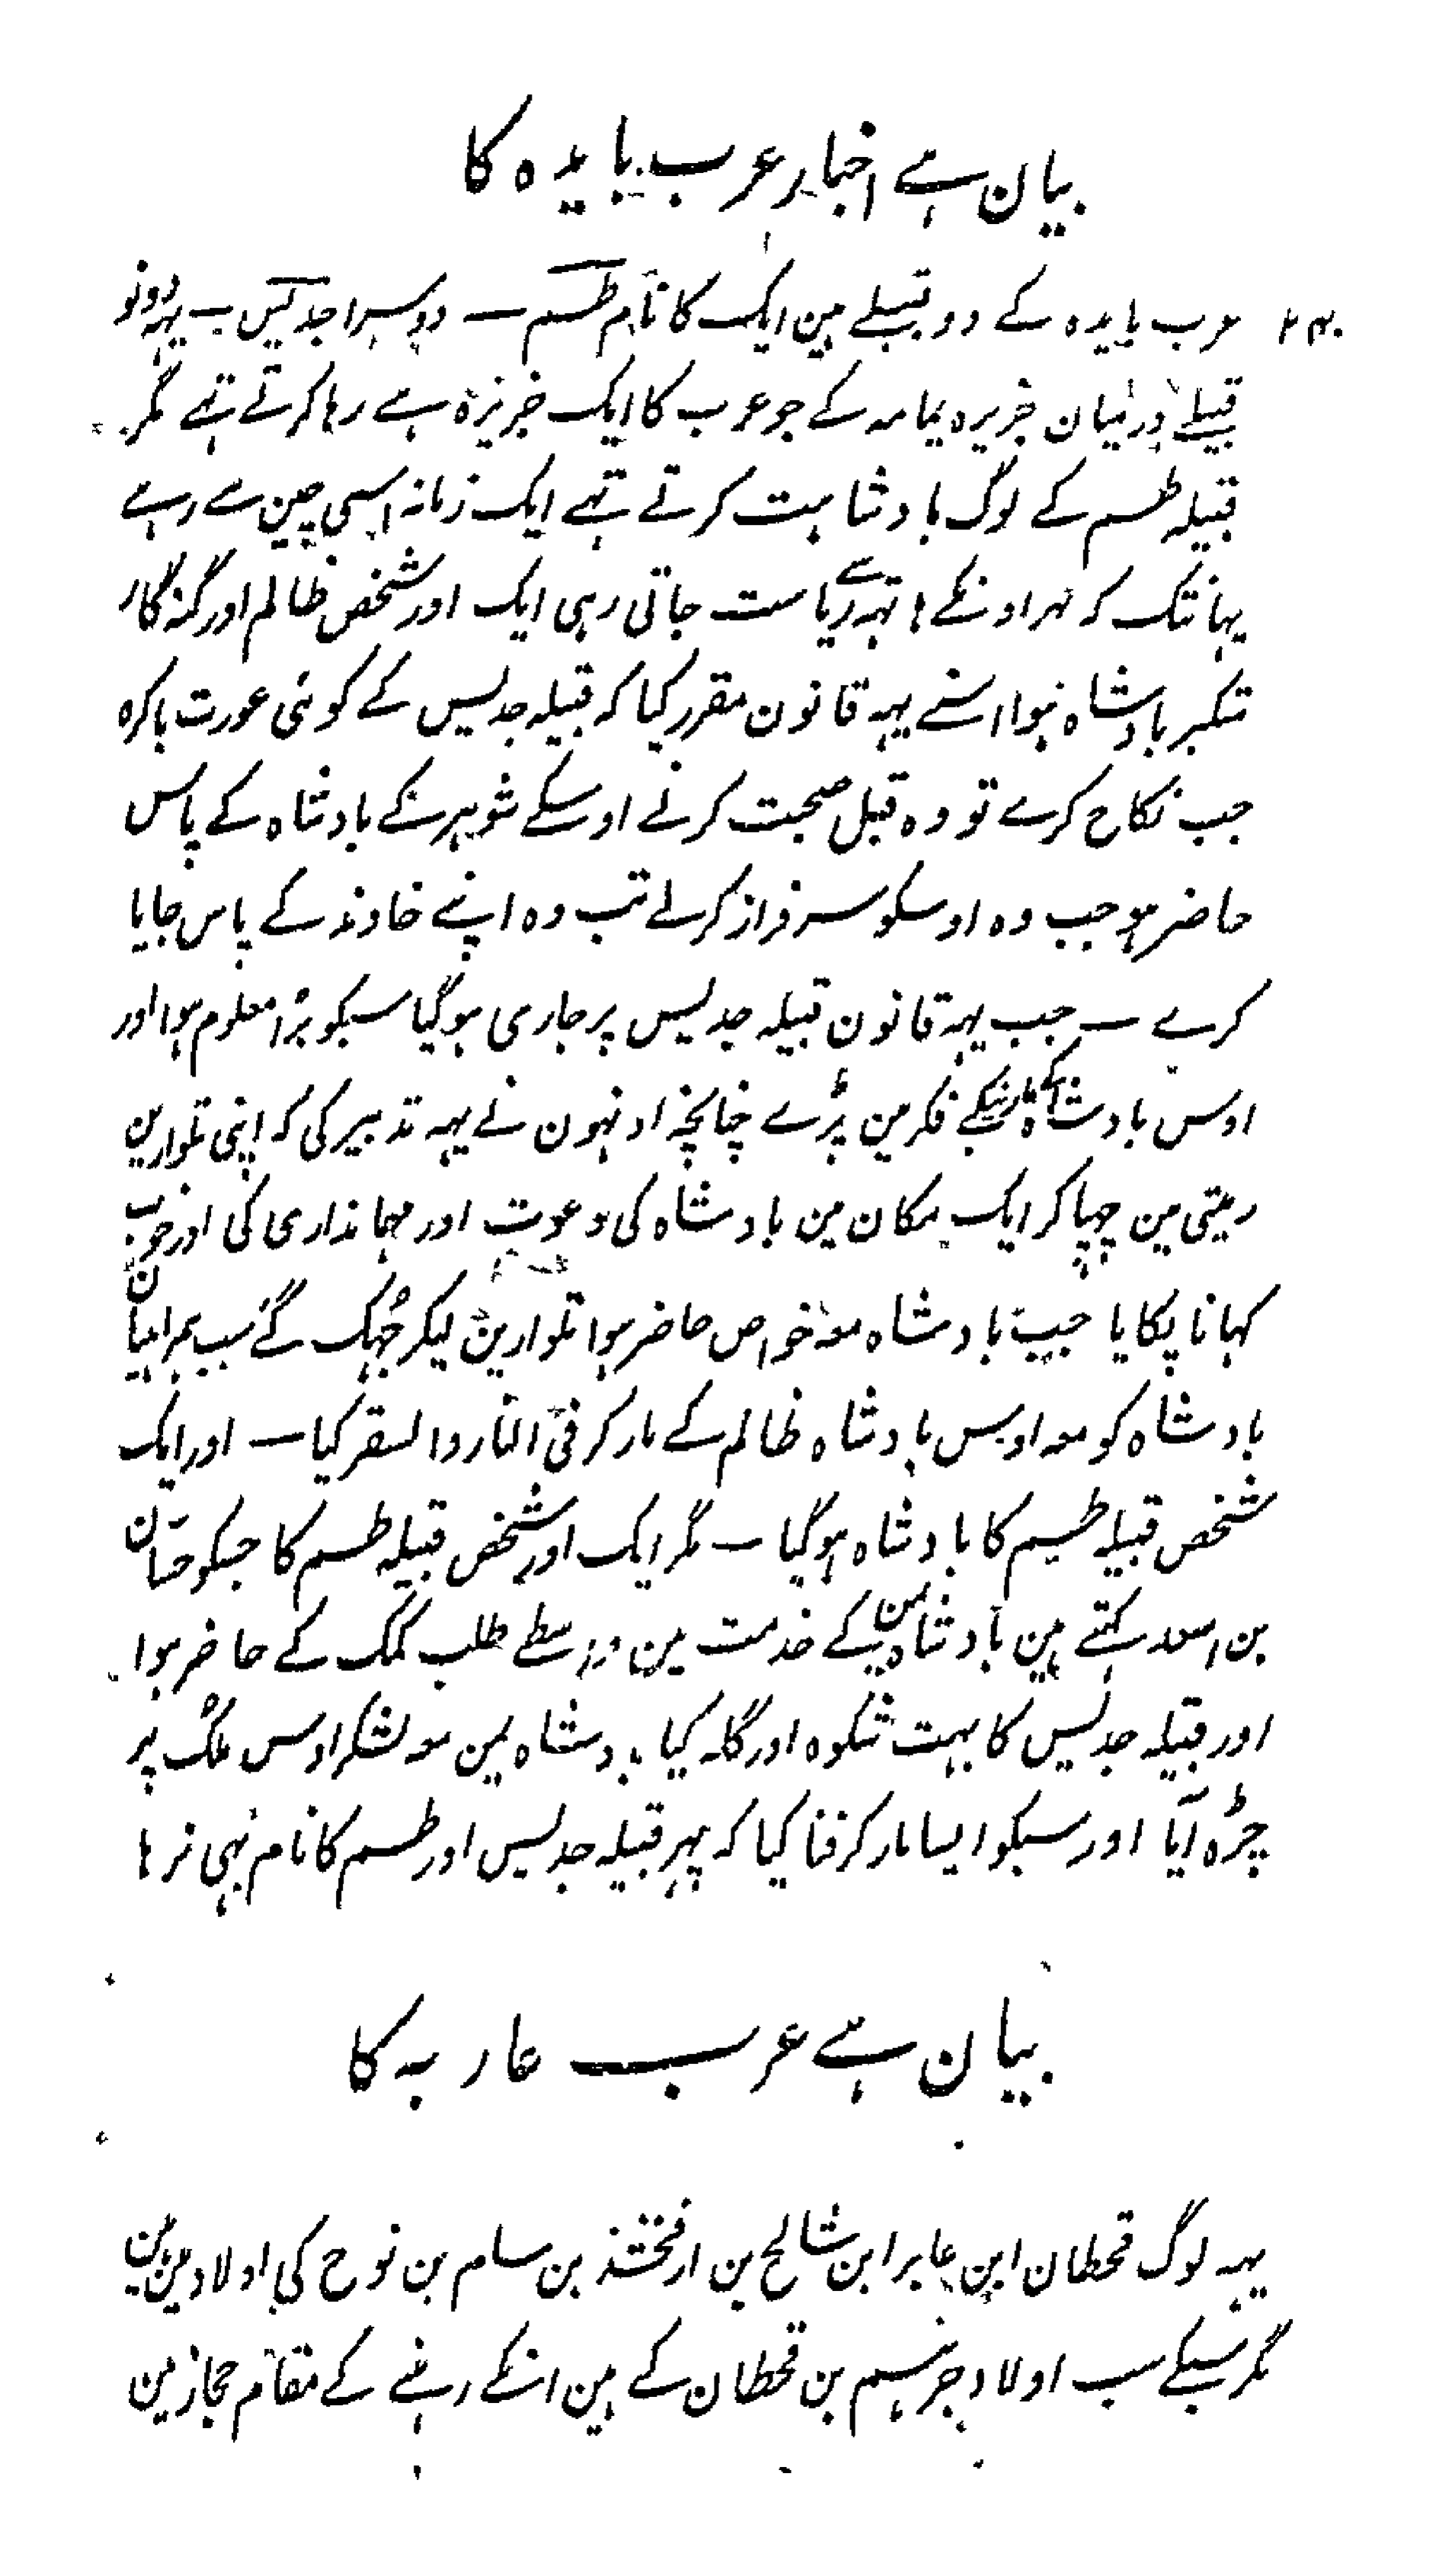 بیان ہے اخبار عرب بایدہ کا
عرب بایدہ کے دو قبیلے ہین ایک کا نام طسم ـ دوسرا جدیس ـ یہہ دونو
قبیلے درمیان جزیرہ یمامہ کے جو عرب کا ایک جزیرہ ہے رہا کرتے تہے مگر
قبیلہ طسم کے لوگ بادشاہت کرتے تہے ایک زمانہ اسی چین سے رہے
یہانتک کہ پہر اونکے ہاتہہ سے ریاست جاتی رہی ایک اور شخص ظالم اور گنہگار
متکبر بادشاہ ہوا اسنے یہہ قانون مقرر کیا کہ قبیلہ جدیس کے کوئی عورت باکرہ
جب نکاح کرے تو وہ قبل صحبت کرنے اوسکے شوہر کے بادشاہ کے پاس
حاضر ہو جب وہ اوسکو سرفراز کرلے تب وہ اپنے خاوند کے پاس جایا
کرے ـ جب یہہ قانون قبیلہ جدیس پر جاری ہوگیا سبکو بُرا معلوم ہوا اور
اوس بادشاہ کے فکر مین پڑے چنانچہ اونہون نے یہہ تدبیر کی کہ اپنی تلوارین
ریتی مین چہپا کر ایک مکان مین بادشاہ کی دعوت اور مہمانداری کی اور خوب
کہانا پکایا جب بادشاہ معہ خواص حاضر ہوا تلوارین لیکر جُہک گئے سب ہمراہیان
بادشاہ کو معہ اوس بادشاہ ظالم کے مار کر فی النار والسقر کیا ـ اور ایک
شخص قبیلہ طسم کا بادشاہ ہوگیا ـ مگر ایک اور شخص قبیلہ طسم کا جسکو حسّان
بن اسعد کہتے ہین بادشاہ یمن کے خدمت مین واسطے طلب کمک کے حاضر ہوا
اور قبیلہ جدیس کا بہت شکوہ اور گلہ کیا بادشاہ یمن معہ لشکر اوس ملک پر
چڑہ آیا اور سبکو ایسا مار کر فنا کیا کہ پہر قبیلہ جدیس اور طسم کا نام بہی نرہا
بیان ہے عرب عاربہ کا
یہہ لوگ قحطان ابن عابر ابن شالح بن ارفخشذ بن سام بن نوح کی اولاد مین ہین
مگر سبکے سب اولاد جرہم بن قحطان کے ہین انکے رہنے کے مقام حجاز مین